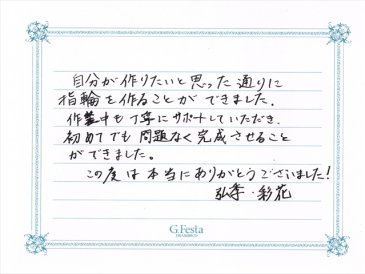 自分が作りたいと思った通りに
指輪を作ることができました。
作業中も丁寧にサポートしていただき、
初めてでも問題なく完成させること
ができました。
この度は本当にありがとうございました!
弘孝・彩花
G.Festa